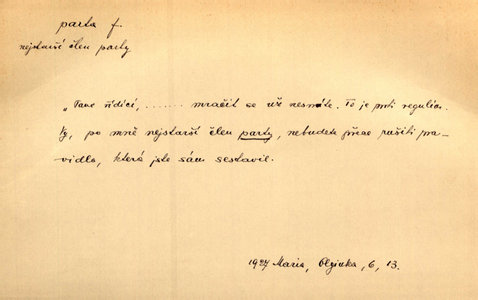 parta f.
nejstarší člen party
„Pane řídící, ........ mračit se už nesmíte. To je proti regulím.
Vy, po mně nejstarší člen party, nebudete přece rušiti pra-
vidla, která jste sám sestavil.
1927 Maria, Olginka, 6, 13.